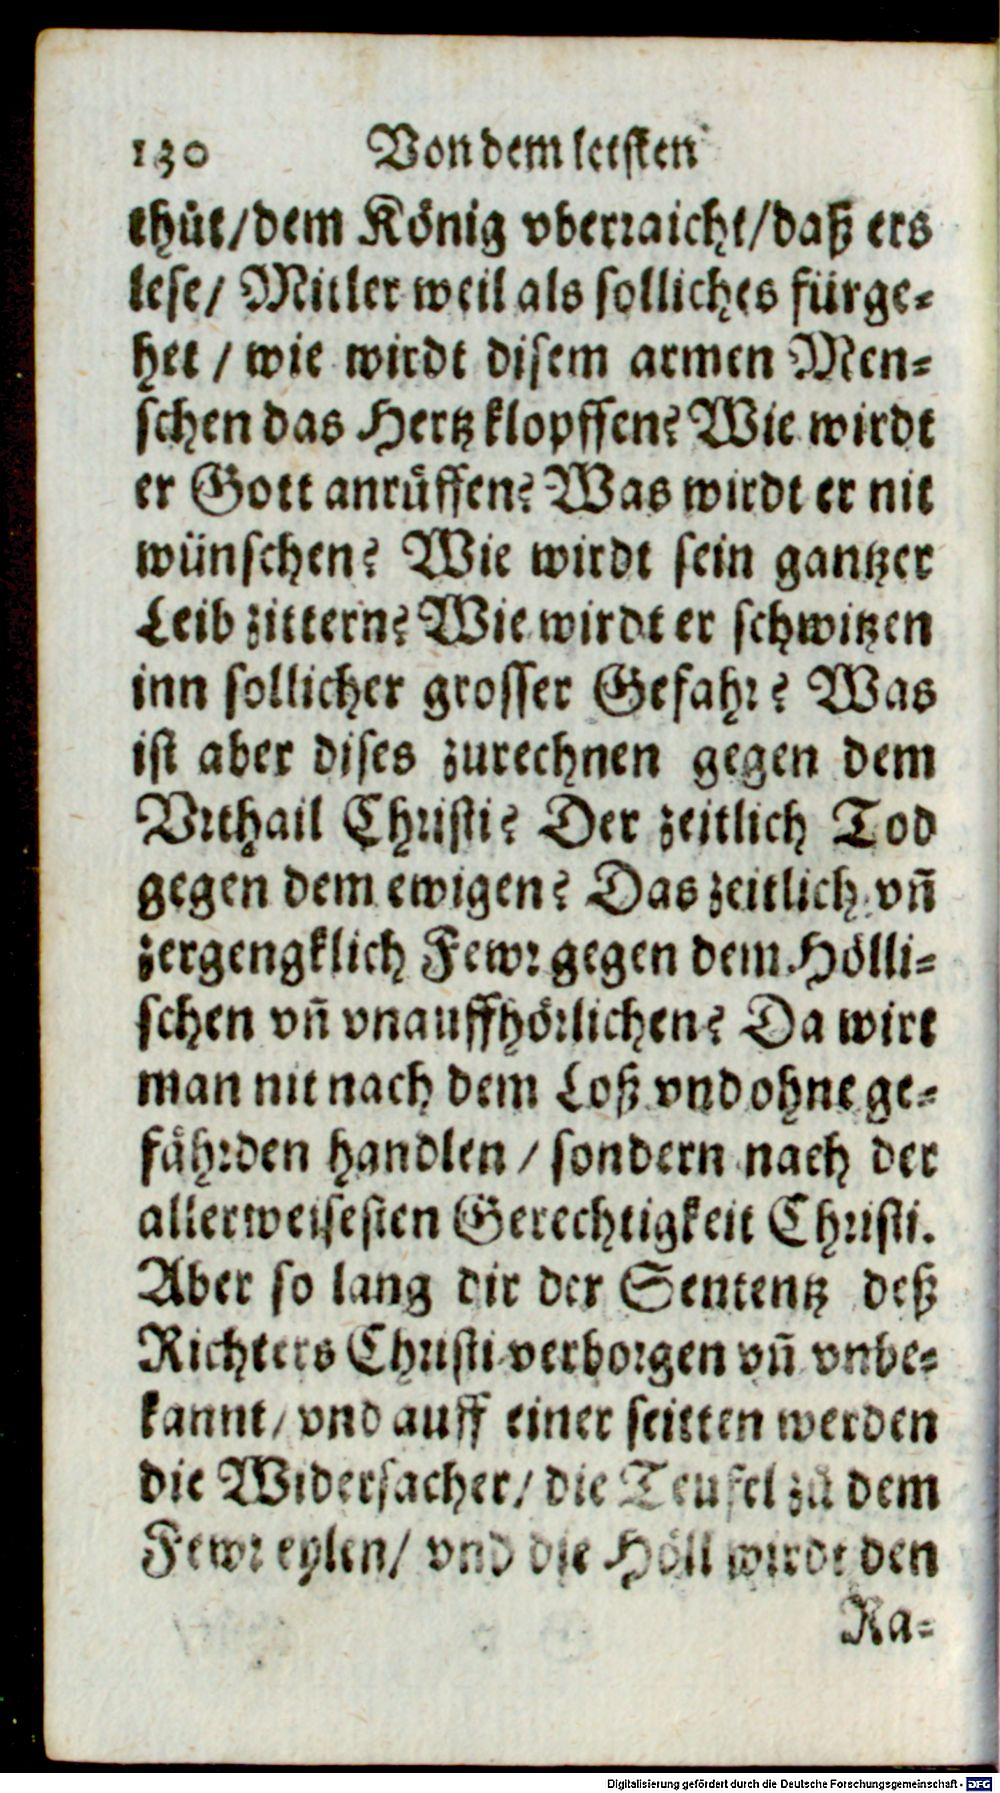 130 Von dem letsten
thüt/dem König vberraicht/daß ers
lese/ Mitler weil als solliches fürge-
het / wie wirdt disem armen Men-
schen das Hertz klopffen? Wie wirdt
er Gott anrüffen? Was wirdt er nit
wünschen? Wie wirdt sein gantzer
Leib zittern? Wie wirdt er schwitzen
inn sollicher grosser Gefahr? Was
ist aber dises zurechnen gegen dem
Vrthail Christi? Der zeitlich Tod
gegen dem ewigen? Das zeitlich vñ
zergengklich Fewr gegen dem Hölli-
schen vñ vnauffhörlichen? Da wirt
man nit nach dem Loß vnd ohne ge-
fåhrden handlen / sondern nach der
allerweisesten Gerechtigkeit Christi.
Aber so lang dir der Sententz deß
Richters Christi verborgen vñ vnbe-
kannt/ vnd auff einer seitten werden
die Widersacher/ die Teufel zů dem
Fewr eylen/ vnd die Höll wirdt den
Ra-
Digitalisierung gefördert durch die Deutsche Forschungsgemeinschaft - DFG